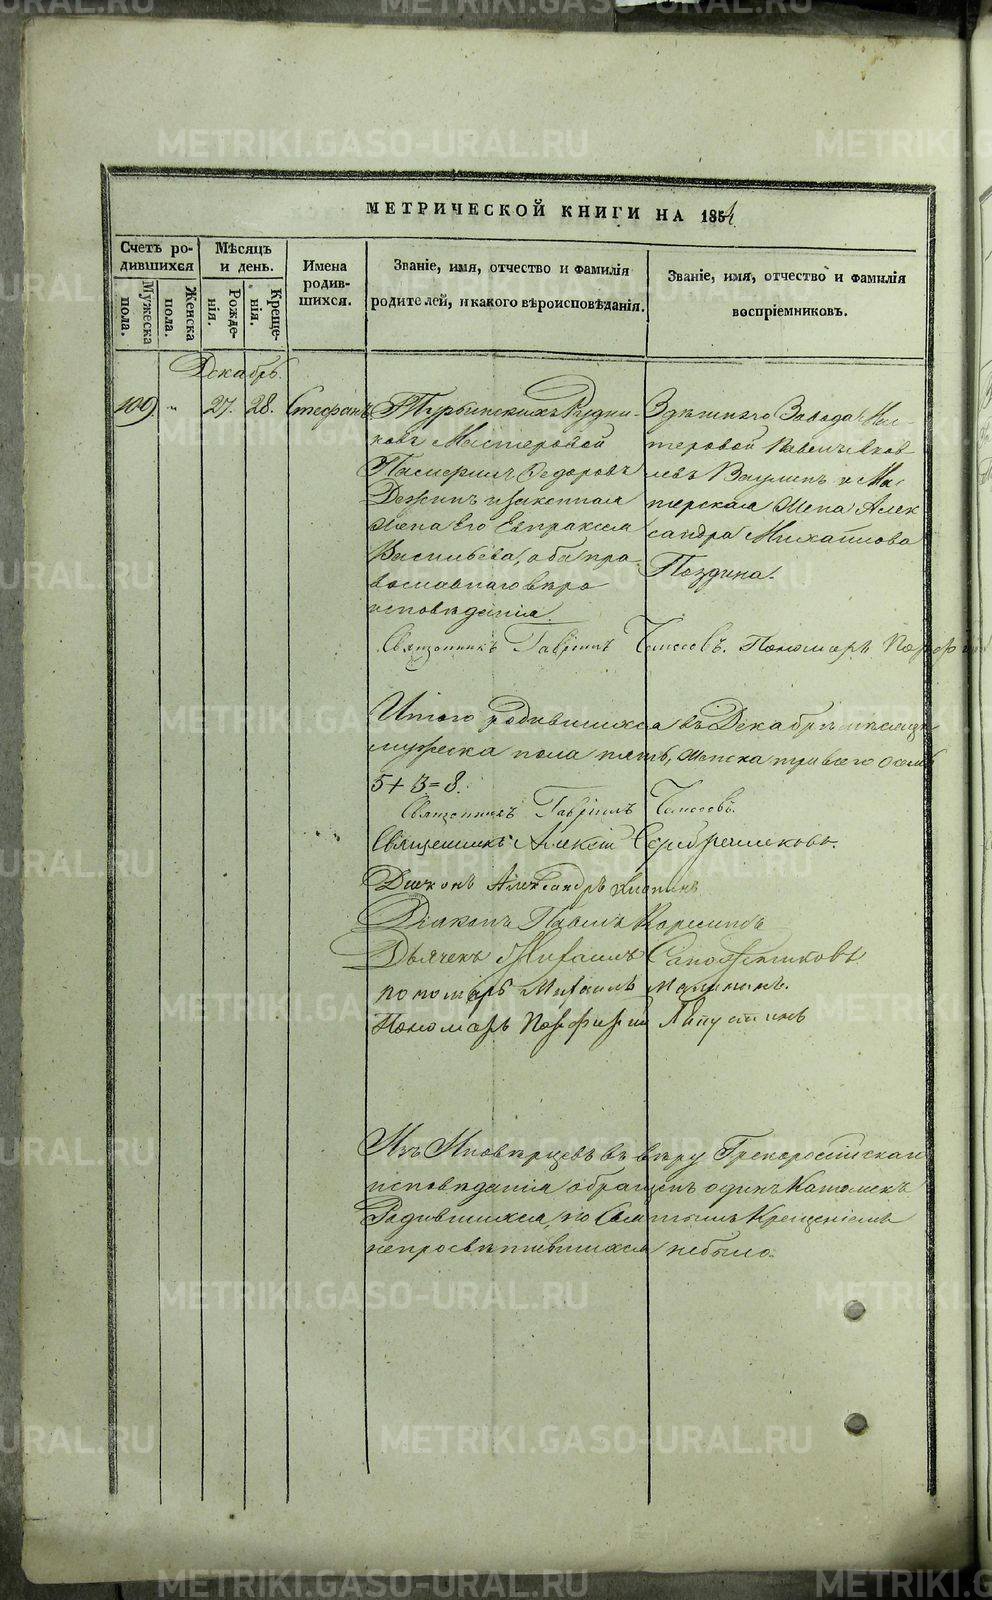 МЕТРИЧЕСКОЙ КНИГИ НА 1854
Счетъ родившихся
Мѣсяцъ и день.
Мужеска пола.
Женска пола.
Рожденія.
Крещенія.
Имена родившихся.
Званіе, имя, отчество и фамилія
родителей, и какого вѣроисповѣданія.
Званіе, имя, отчество и фамилія
воспріемниковъ.
Декабрь.
109. „ 27. 28. Стефанъ
Турьинскихъ Рудни-
ковъ Мастеровой
Федоровъ
и законная
жена его Евпраксія
Васильева, оба пра-
вославнаго вѣро
исповѣданія.
Здѣшняго Завода Мас-
теровой Павелъ Яков
левъ Ваулинъ и Мас-
терская жена Алек
сандра Михайлова
Поздина.
Священникъ Гавріилъ Пономарь Порфирій
Итого родившихся въ Декабрѣ мѣсяцѣ
мужеска пола пять, женска три всего осемь
5+3=8.
Священникъ Гавріилъ
Священникъ Алексій Серебрениковъ.
Діаконъ Александръ
Діаконъ Павелъ
Дьячекъ Михаилъ Сапожниковъ
пономарь Михаилъ Малининъ.
Пономарь Порфирій Лапустинъ
Изъ Иновѣрцевъ въ вѣру Грекороссійскаго
исповѣданія обращенъ одинъ Католикъ
Родившихся, но Святымъ Крещеніемъ
непросвѣтившихся небыло.
METRIKI.GASO-URAL.RU